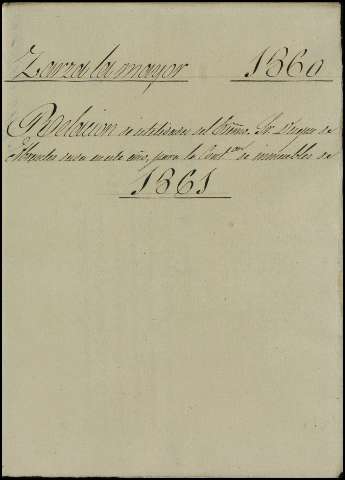 Zarza la mayor 1860
Relacion de utilidades del Excmo. Sr. Duque de
Abrantes en este año, para la Cont.on de inmuebles de
1861